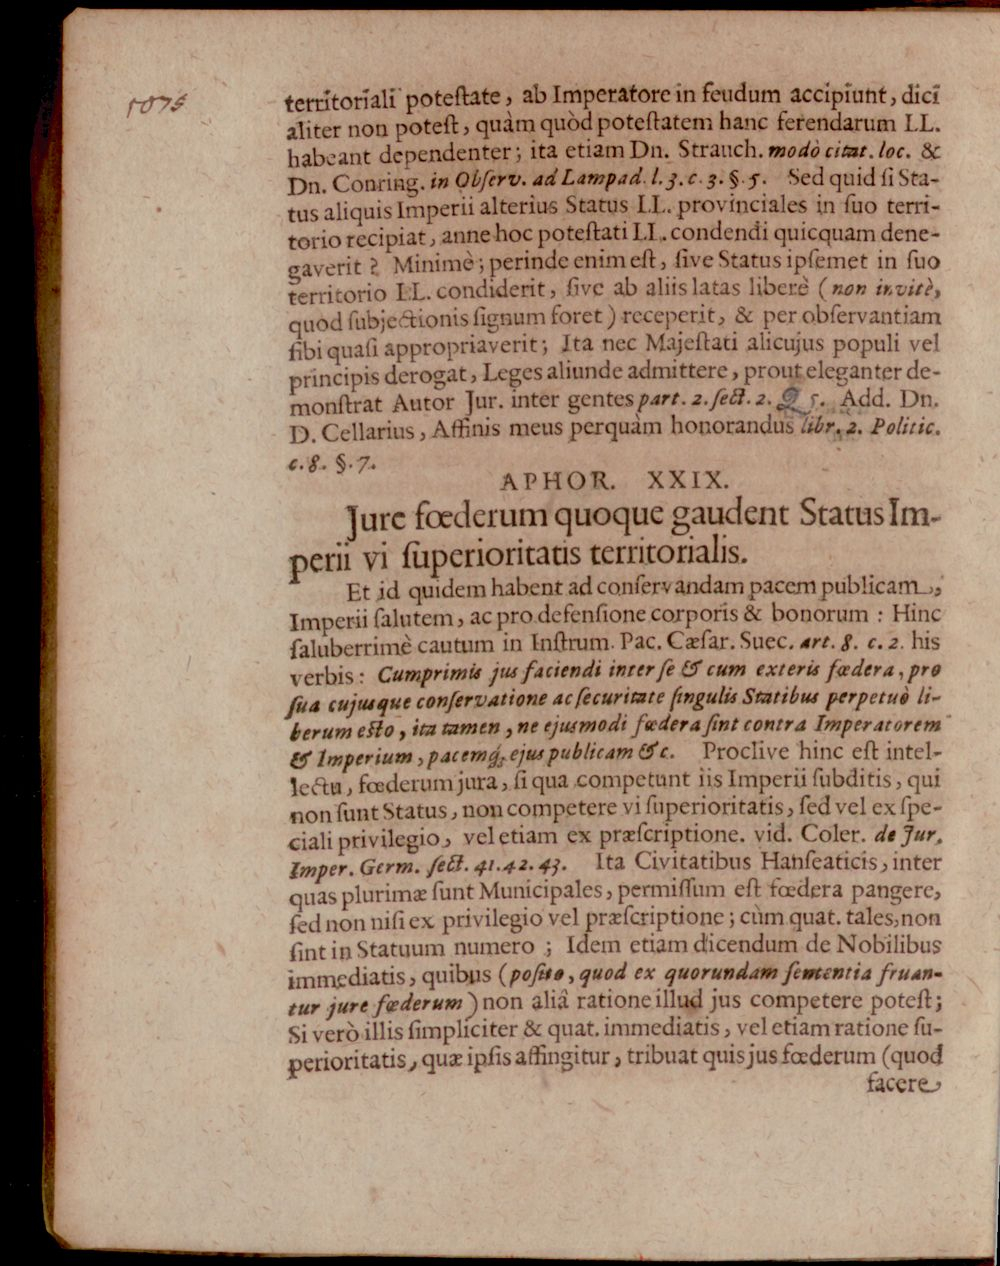 1075
territoriali potestate, ab Imperatore in feudum accipiunt, dici
aliter non potest, quàm quòd potestatem hanc ferendarum LL.
habeant dependenter; ita etiam Dn. Strauch. modò citat. loc. &
Dn. Conring. in Observ. ad Lampad. l. 3. c. 3. §. 5. Sed quid si Sta-
tus aliquis Imperii alterius Status LL. provinciales in suo terri-
torio recipiat, anne hoc potestati LL. condendi quicquam dene-
gaverit? Minimè; perinde enim est, sive Status ipsemet in suo
territorio LL. condiderit, sive ab aliis latas liberè (non invitè,
quòd subjectionis signum foret) receperit, & per observantiam
sibi quasi appropriaverit; Ita nec Majestati alicujus populi vel
principis derogat, Leges aliunde admittere, prout eleganter de-
monstrat Autor Jur. inter gentes part. 2. sect. 2. Q 5. Add. Dn.
D. Cellarius, Affinis meus perquàm honorandus libr. 2. Politic.
c. 8. §. 7.
APHOR. XXIX.
Jure fœderum quoque gaudent Status Im-
perii vi superioritatis territorialis.
Et id quidem habent ad conservandam pacem publicam,
Imperii salutem, ac pro defensione corporis & bonorum: Hinc
saluberrimè cautum in Instrum. Pac. Cæsar. Suec. art. 8. c. 2. his
verbis: Cumprimis jus faciendi inter se & cum exteris fœdera, pro
sua cujusque conservatione ac securitate singulis Statibus perpetuò li-
berum esto, ita tamen, ne ejusmodi fœdera sint contra Imperatorem
& Imperium, pacemq́; ejus publicam &c. Proclive hinc est intel-
lectu, fœderum jura, si qua competunt iis Imperii subditis, qui
non sunt Status, non competere vi superioritatis, sed vel ex spe-
ciali privilegio, vel etiam ex præscriptione. vid. Coler. de Jur.
Imper. Germ. sect. 41. 42. 43. Ita Civitatibus Hanseaticis, inter
quas plurimæ sunt Municipales, permissum est fœdera pangere,
sed non nisi ex privilegio vel præscriptione; cùm quat. tales, non
sint in Statuum numero; Idem etiam dicendum de Nobilibus
immediatis, quibus (posito, quod ex quorundam sententia fruan-
tur jure fœderum) non aliâ ratione illud jus competere potest;
Si verò illis simpliciter & quat. immediatis, vel etiam ratione su-
perioritatis, quæ ipsis affingitur, tribuat quis jus fœderum (quod
facere